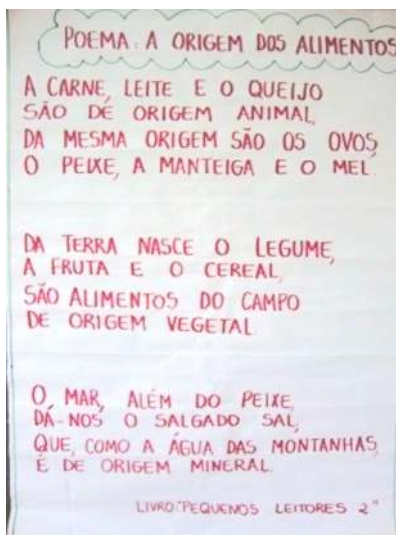 POEMA: A ORIGEM DOS ALIMENTOS
A CARNE, LEITE E O QUEIJO
SÃO DE ORIGEM ANIMAL,
DA MESMA ORIGEM SÃO OS OVOS,
O PEIXE, A MANTEIGA E O MEL.
DA TERRA NASCE O LEGUME,
A FRUTA E O CEREAL,
SÃO ALIMENTOS DO CAMPO
DE ORIGEM VEGETAL.
O, MAR, ALÉM DO PEIXE,
DÁ-NOS O SALGADO SAL,
QUE, COMO A ÁGUA DAS MONTANHAS,
É DE ORIGEM MINERAL.
LIVRO:"PEQUENOS LEITORES 2"